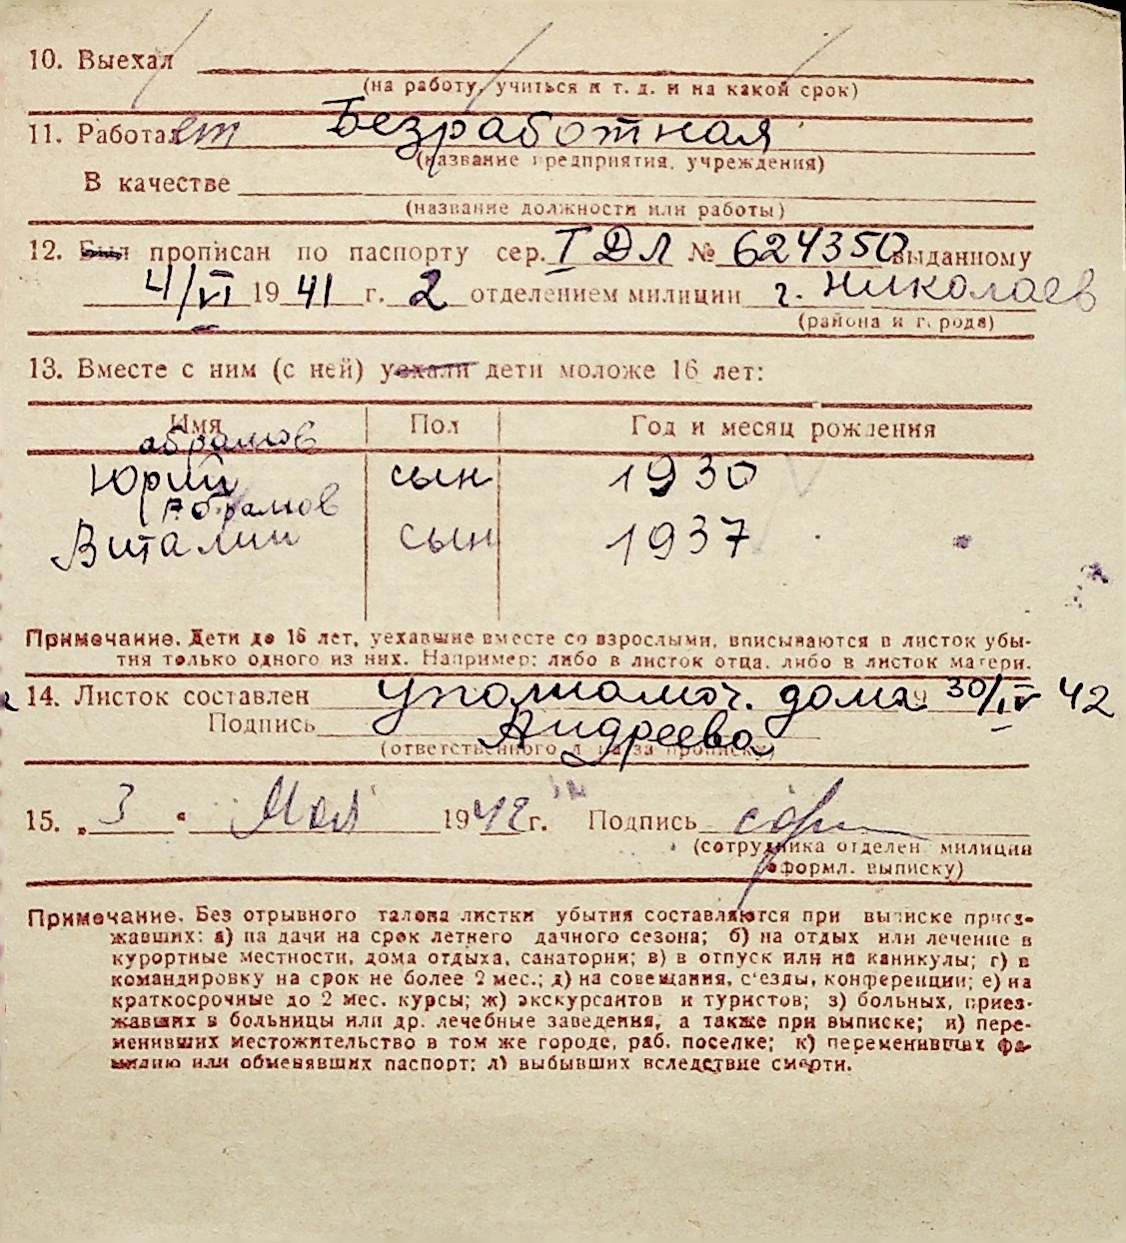 10. Выехал
(на работу, учиться и т. д. и на какой срок)
11. Работает Безработная
(название предприятия, учреждения)
В качестве
(название должности или работы)
12. Был прописан по паспорту сер. I ДЛ № 624350 выданному
4/VI 1941 г. 2 отделением милиции г. Николаев
(района и города)
13. Вместе с ним (с ней) уехали дети моложе 16 лет:
Имя Пол Год и месяц рождения
абрамов
Юрий сын 1930
Абрамов
Виталии сын 1937
Примечание. Дети до 16 лет, уехавшие вместе со взрослыми, вписываются в листок убы-
тия только одного из них. Например: либо в листок отца, либо в листок матери.
14. Листок составлен уполномоч. дома 30/IV 42
Подпись Андреева
(ответственного за прописку)
15. „3“ Мая 1942 г. Подпись
(сотрудника отделен. милиции
оформл. выписку)
Примечание. Без отрывного талона листки убытия составляются при выписке приез-
жавших: а) на дачи на срок летнего дачного сезона; б) на отдых или лечение в
курортные местности, дома отдыха, санатории; в) в отпуск или на каникулы; г) в
командировку на срок не более 2 мес.; д) на совещания, с'езды, конференции; е) на
краткосрочные до 2 мес. курсы; ж) экскурсантов и туристов; з) больных, приез-
жавших в больницы или др. лечебные заведения, а также при выписке; и) пере-
менивших местожительство в том же городе, раб. поселке; к) переменивших фа-
милию или обменявших паспорт; л) выбывших вследствие смерти.